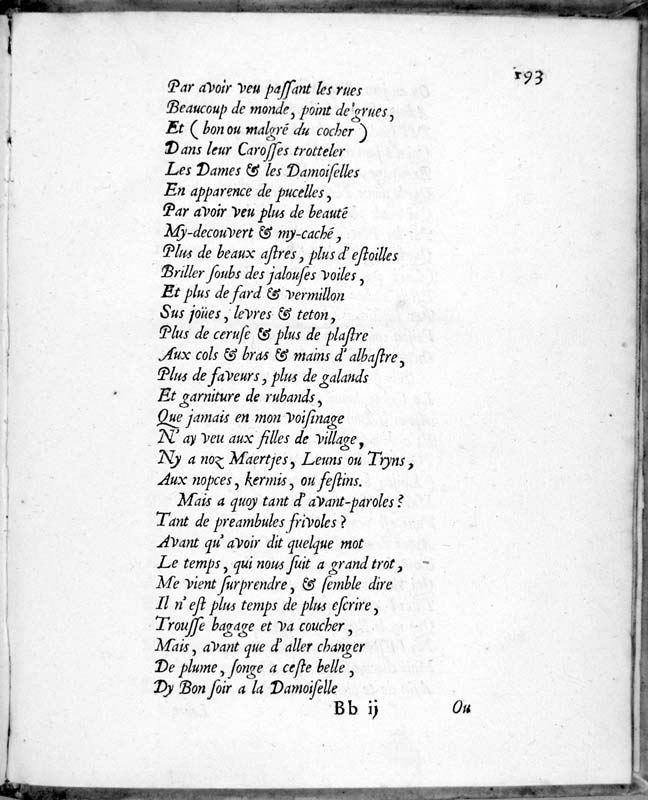 193
Par avoir veu paſſant les rues
Beaucoup de monde, point de grues,
Et ( bon ou malgré du cocher )
Dans leur Caroſſes trotteler
Les Dames & les Damoiſelles
En apparence de pucelles,
Par avoir veu plus de beauté
My-decouvert & my-caché,
Plus de beaux aſtres, plus d'eſtoilles
Briller ſoubs des jalouſes voiles,
Et plus de fard & vermillon
Sus joües, levres & teton,
Plus de ceruſe & plus de plaſtre
Aux cols & bras & mains d'albaſtre,
Plus de faveurs, plus de galands
Et garniture de rubands,
Que jamais en mon voiſinage
N'ay veu aux filles de village,
Ny a noz Maertjes, Leuns ou Tryns,
Aux nopces, kermis, ou feſtins.
Mais a quoy tant d'avant-paroles?
Tant de preambules frivoles?
Avant qu'avoir dit quelque mot
Le temps, qui nous ſuit a grand trot,
Me vient ſurprendre, & ſemble dire
Il n'eſt plus temps de plus eſcrire,
Trouſſe bagage et va coucher,
Mais, avant que d'aller changer
De plume, ſonge a ceſte belle,
Dy Bon ſoir a la Damoiſelle
Bb ij Ou